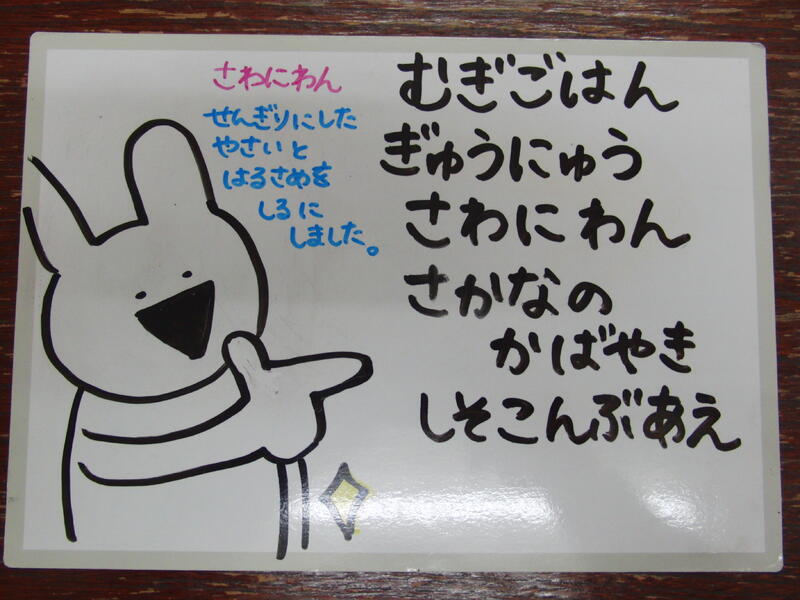 さわにわん
せんぎりにした
やさいと
はるさめを
しるに
しました。
むぎごはん
ぎゅうにゅう
さわにわん
さかなの
かばやき
しそこんぶあえ